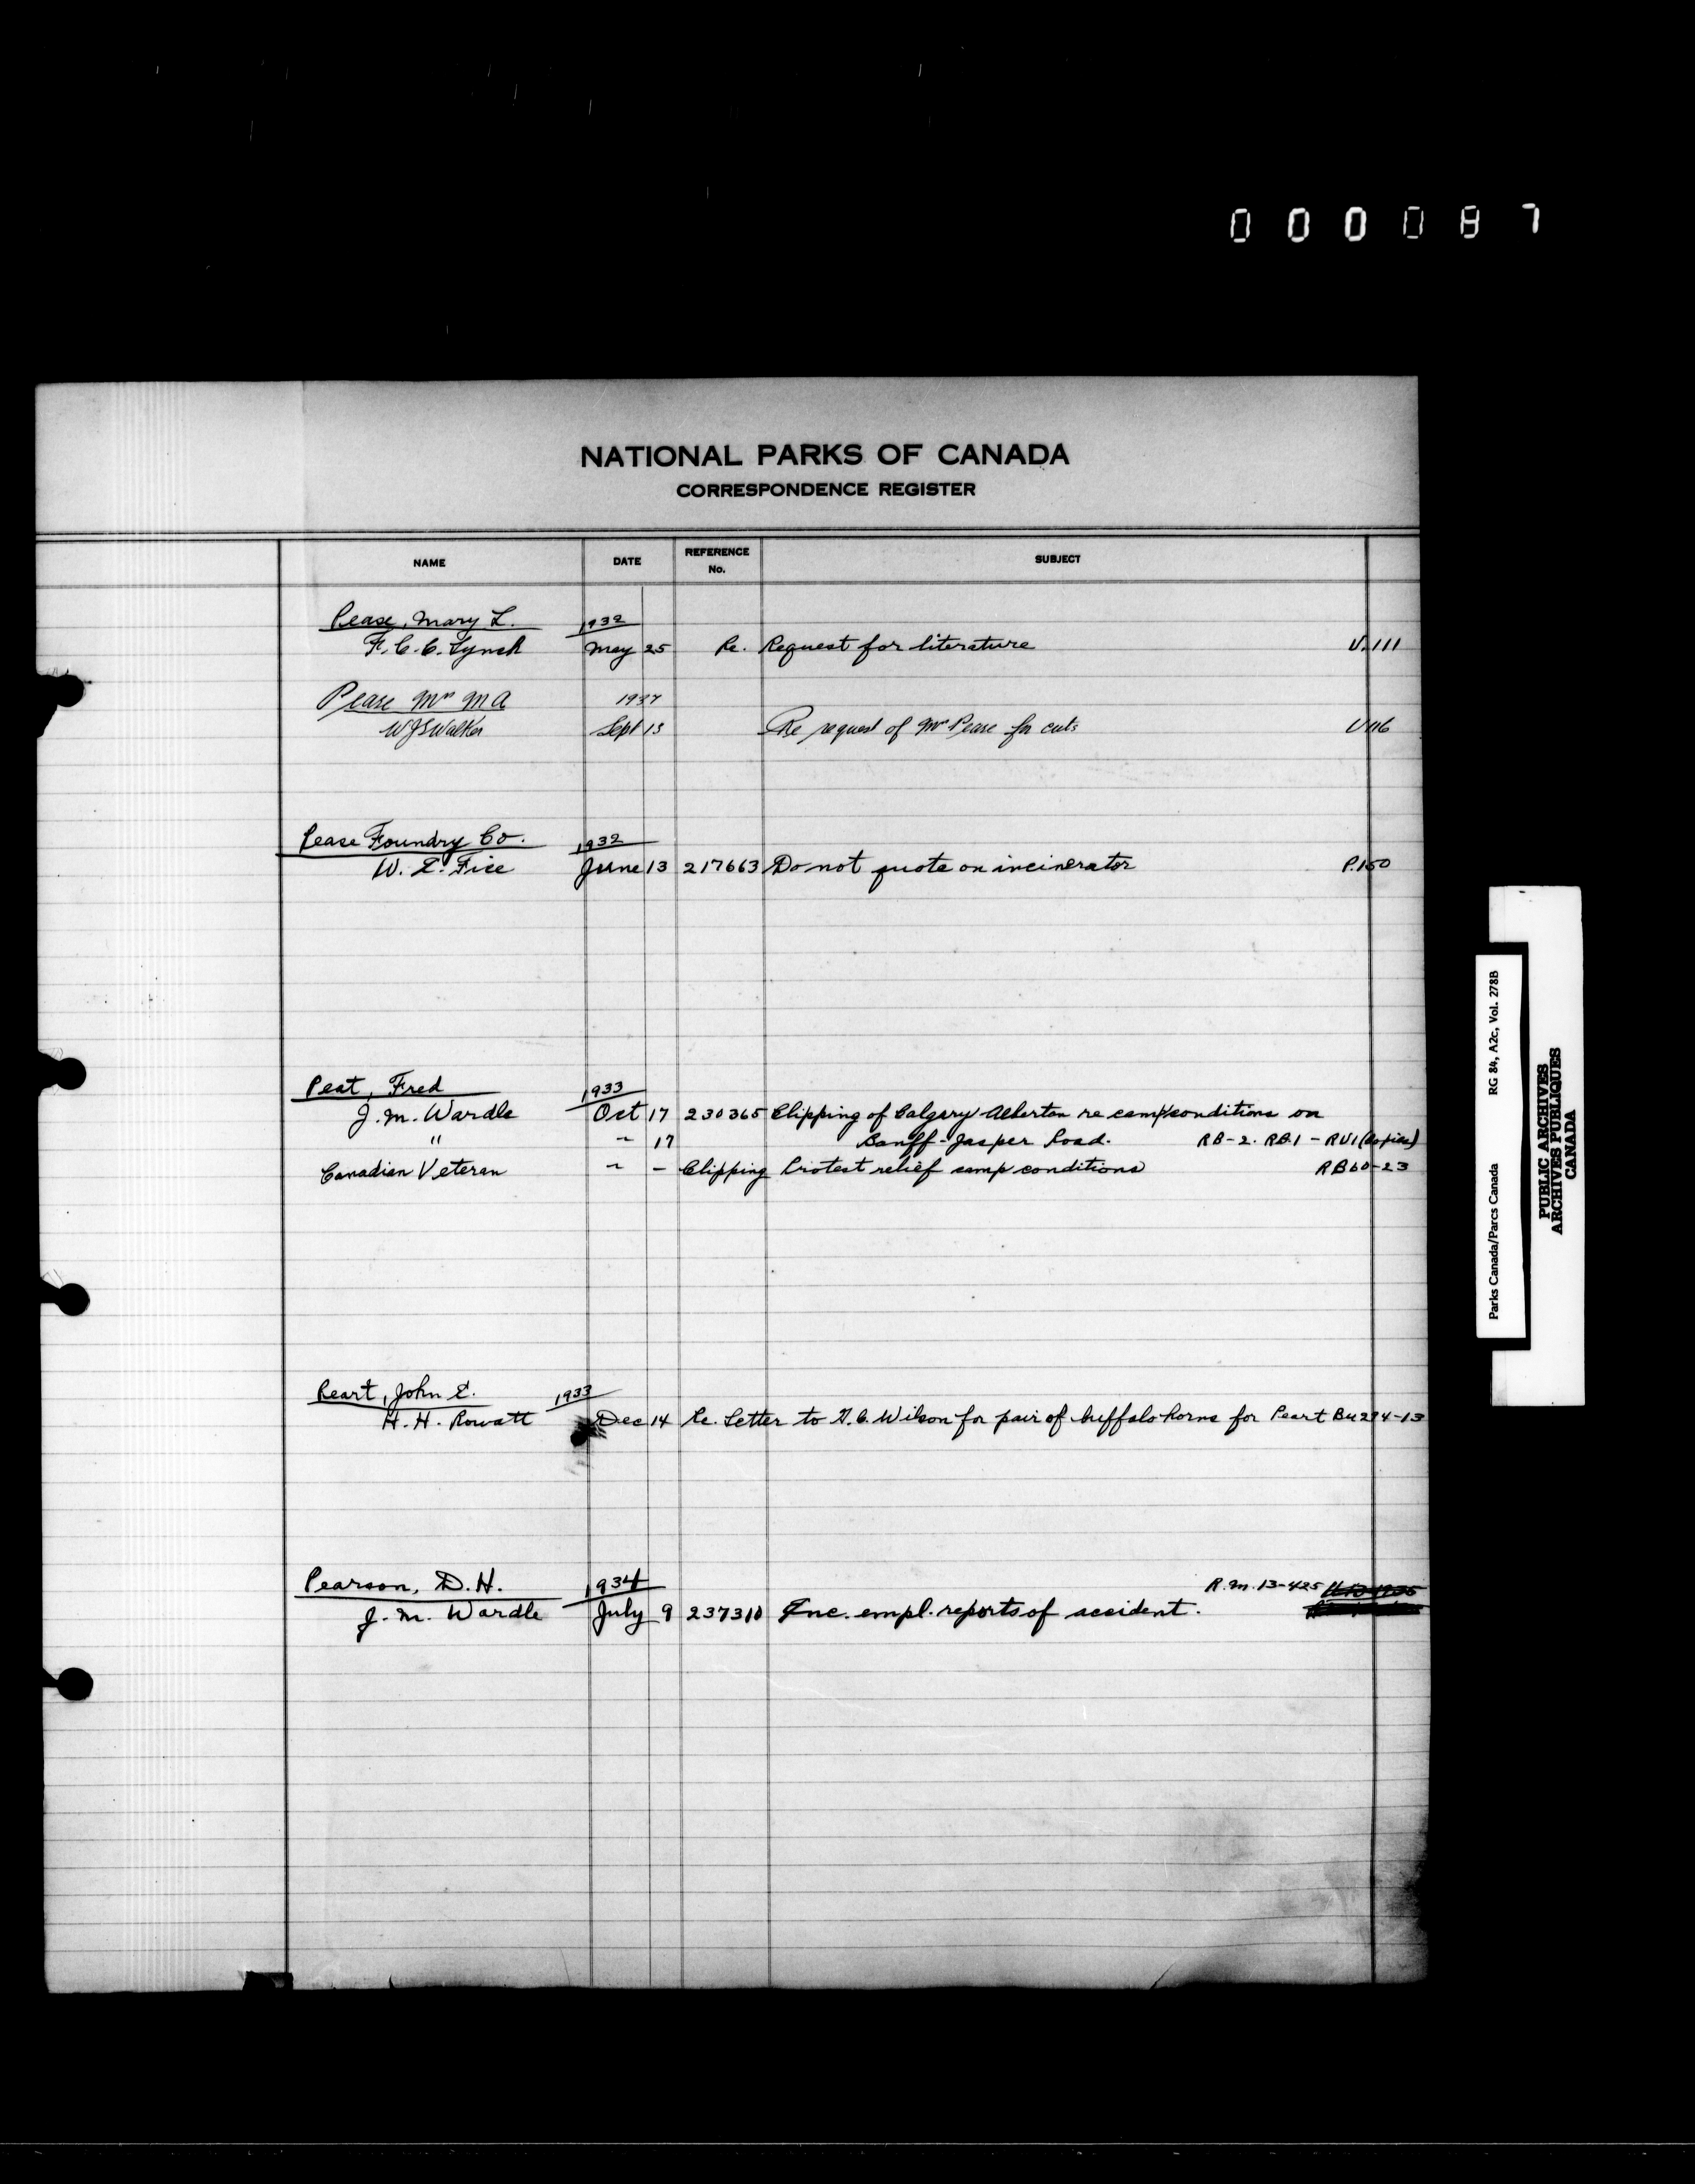 000087
NATIONAL PARKS OF CANADA
CORRESPONDENCE REGISTER
NAME DATE REFERENCE No. SUBJECT
Pease, Mary L. 1932
F.C.C. Lynch May 25 Re. Request for literature U.111
Pease Mrs M A 1937
W J S Walker Sept 13 Re request of Mrs Pease for cuts U 116
Pease Foundry Co. 1932
W. E. Fice June 13 217663 Do not quote on incinerator P.150
Peat, Fred 1933
J. M. Wardle Oct 17 230365 Clipping of Calgary Albertan re camp conditions on
" " 17 Banff-Jasper Road. RB-2. RB.1 - RU1 (copies)
Canadian Veteran " - Clipping Protest relief camp conditions RB60-23
Peart, John E. 1933
H. H. Rowatt Dec 14 Re. Letter to Wilson for pair of buffalo horns for Peart Bu274-13
Pearson, D. H. 1934 R.M.13-425
J. M. Wardle July 9 237310 Enc. empl. reports of accident.
Parks Canada/Parcs Canada RG 84, A2c, Vol. 278B
PUBLIC ARCHIVES
ARCHIVES PUBLIQUES
CANADA